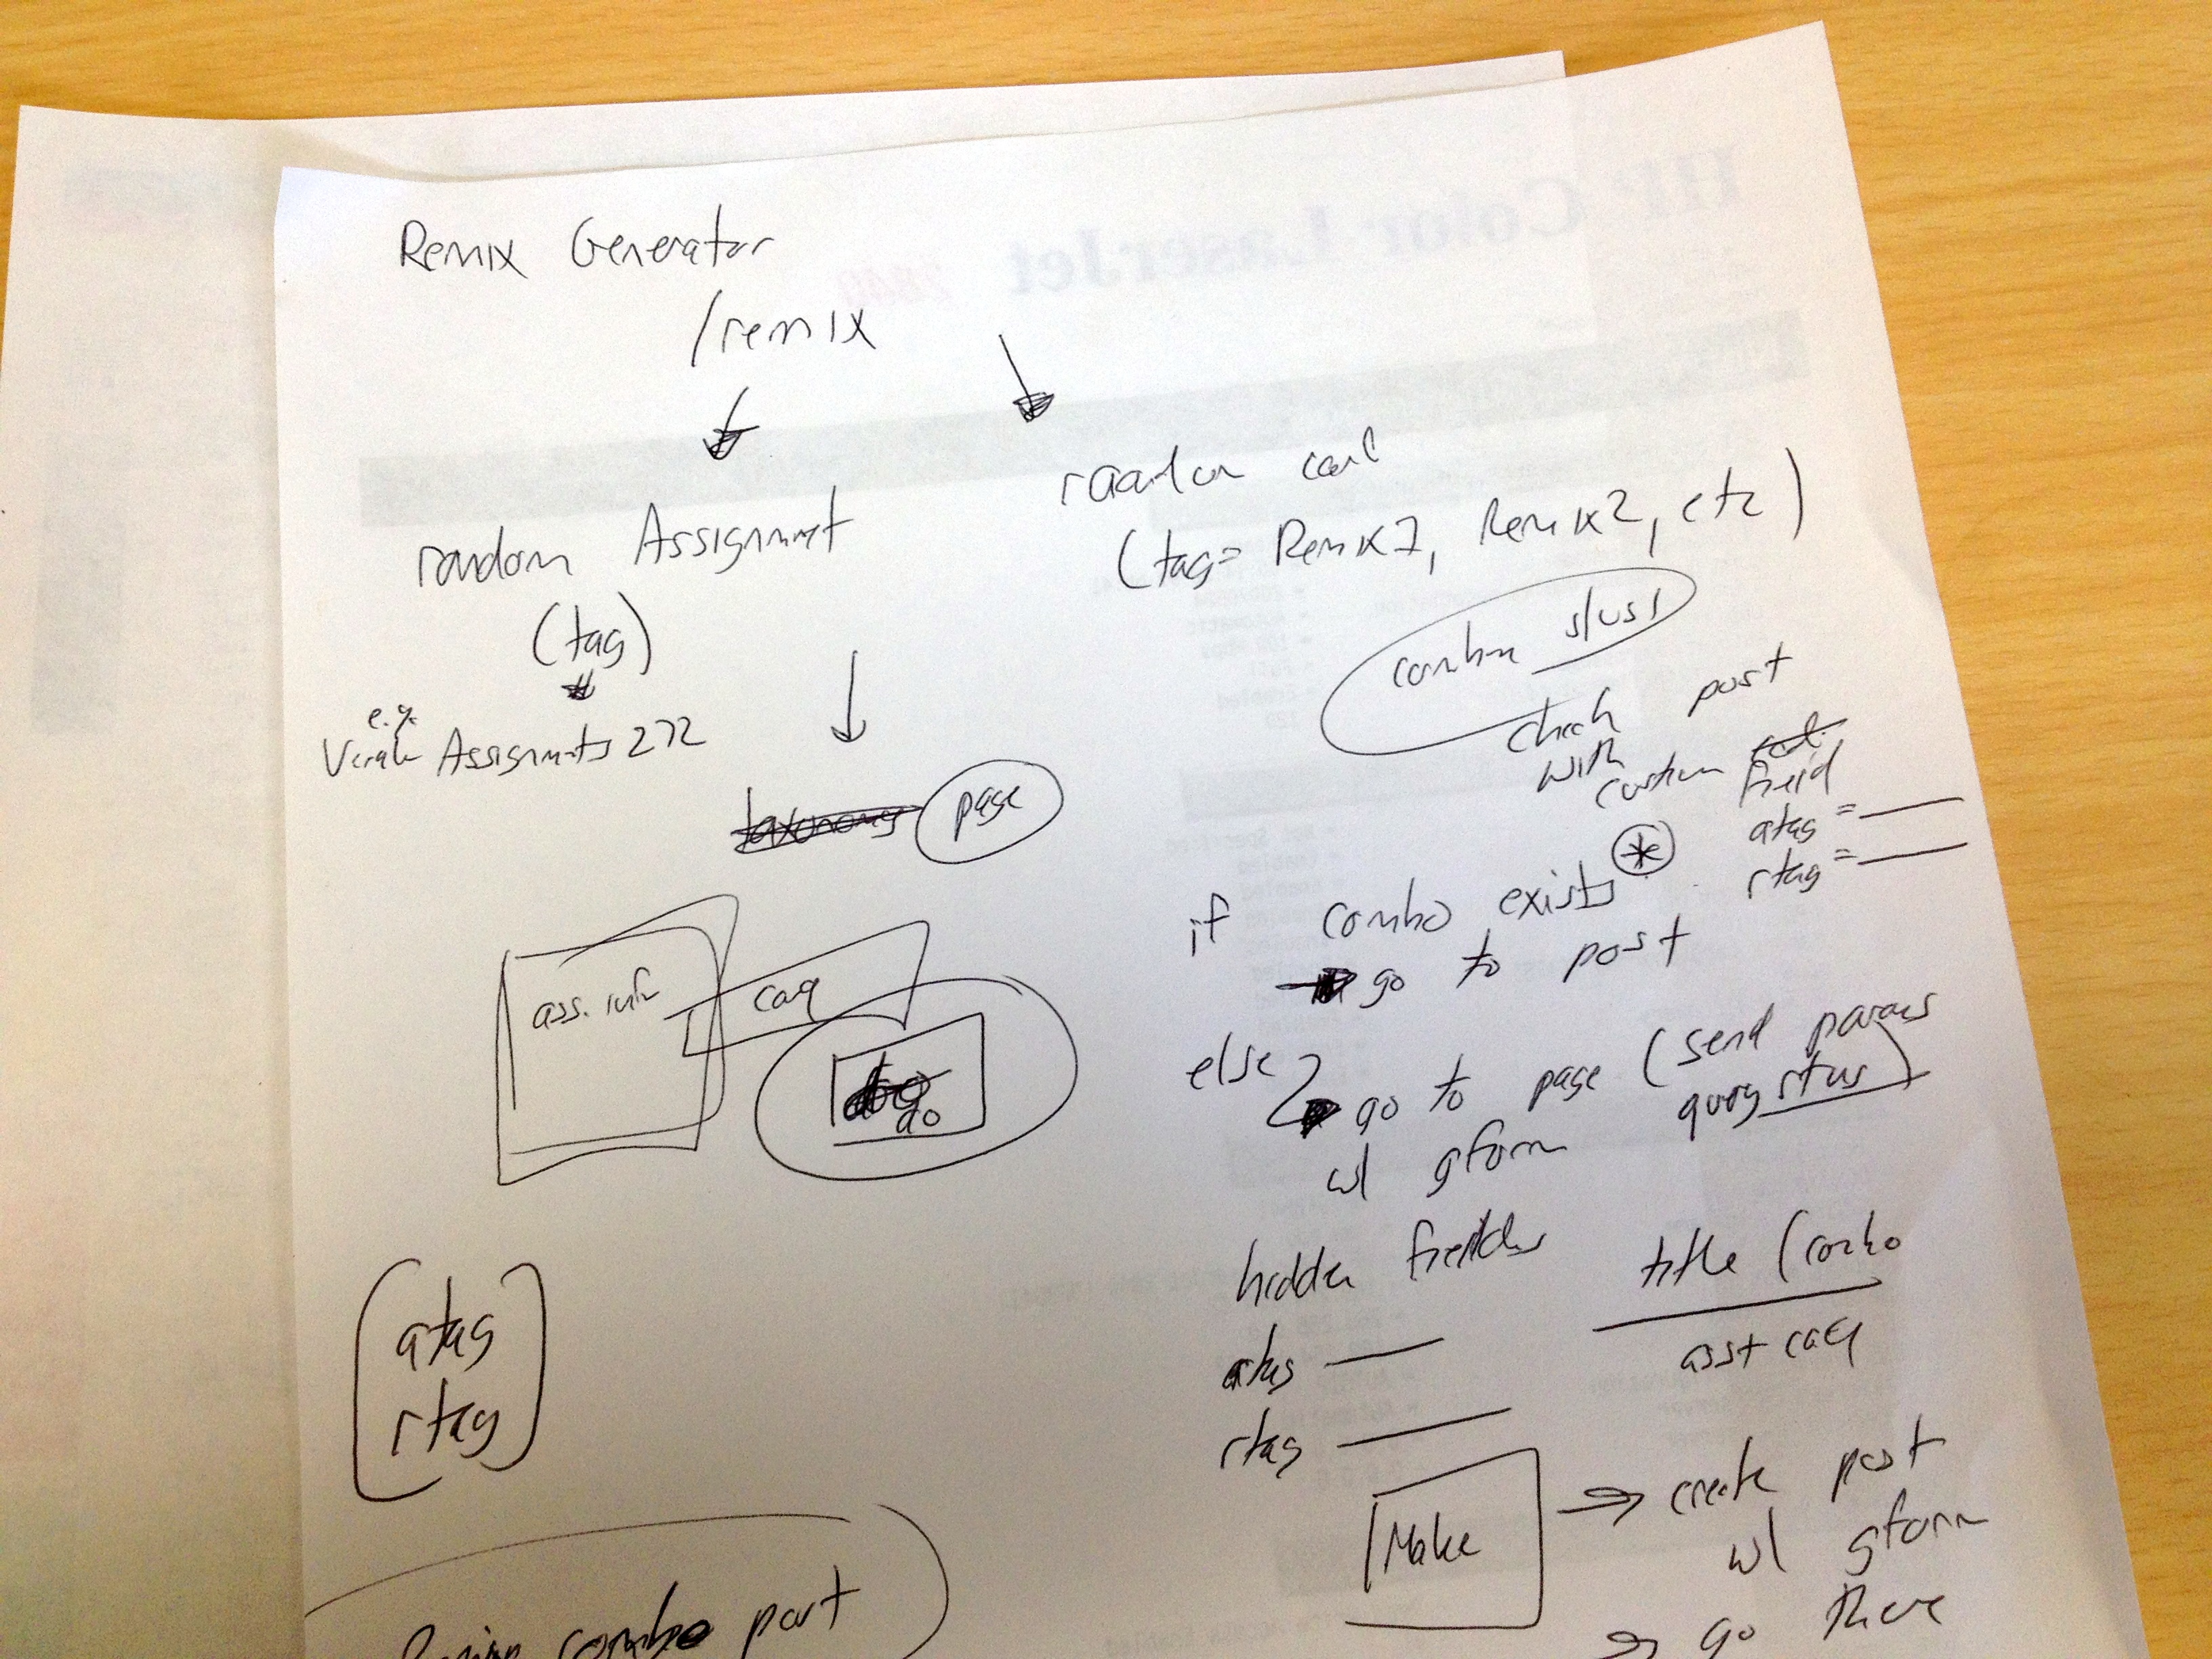 HP Color LaserJet
Remix Generator
/remix
random Assignment
(tag)
e.g.
Assignments 272
taxonomy page
ass. info
card
do
atag
rtag
combo post
random card
(tag= Remix1, Remix2, etc)
combo slug
check post
with
custom field
atag = ___
rtag = ___
if combo exists *
go to post
else
go to page (send params
query string)
w/ gform
hidden fields
title (combo
atag ___
asst card
rtag ___
Make
create post
w/ gform
go there